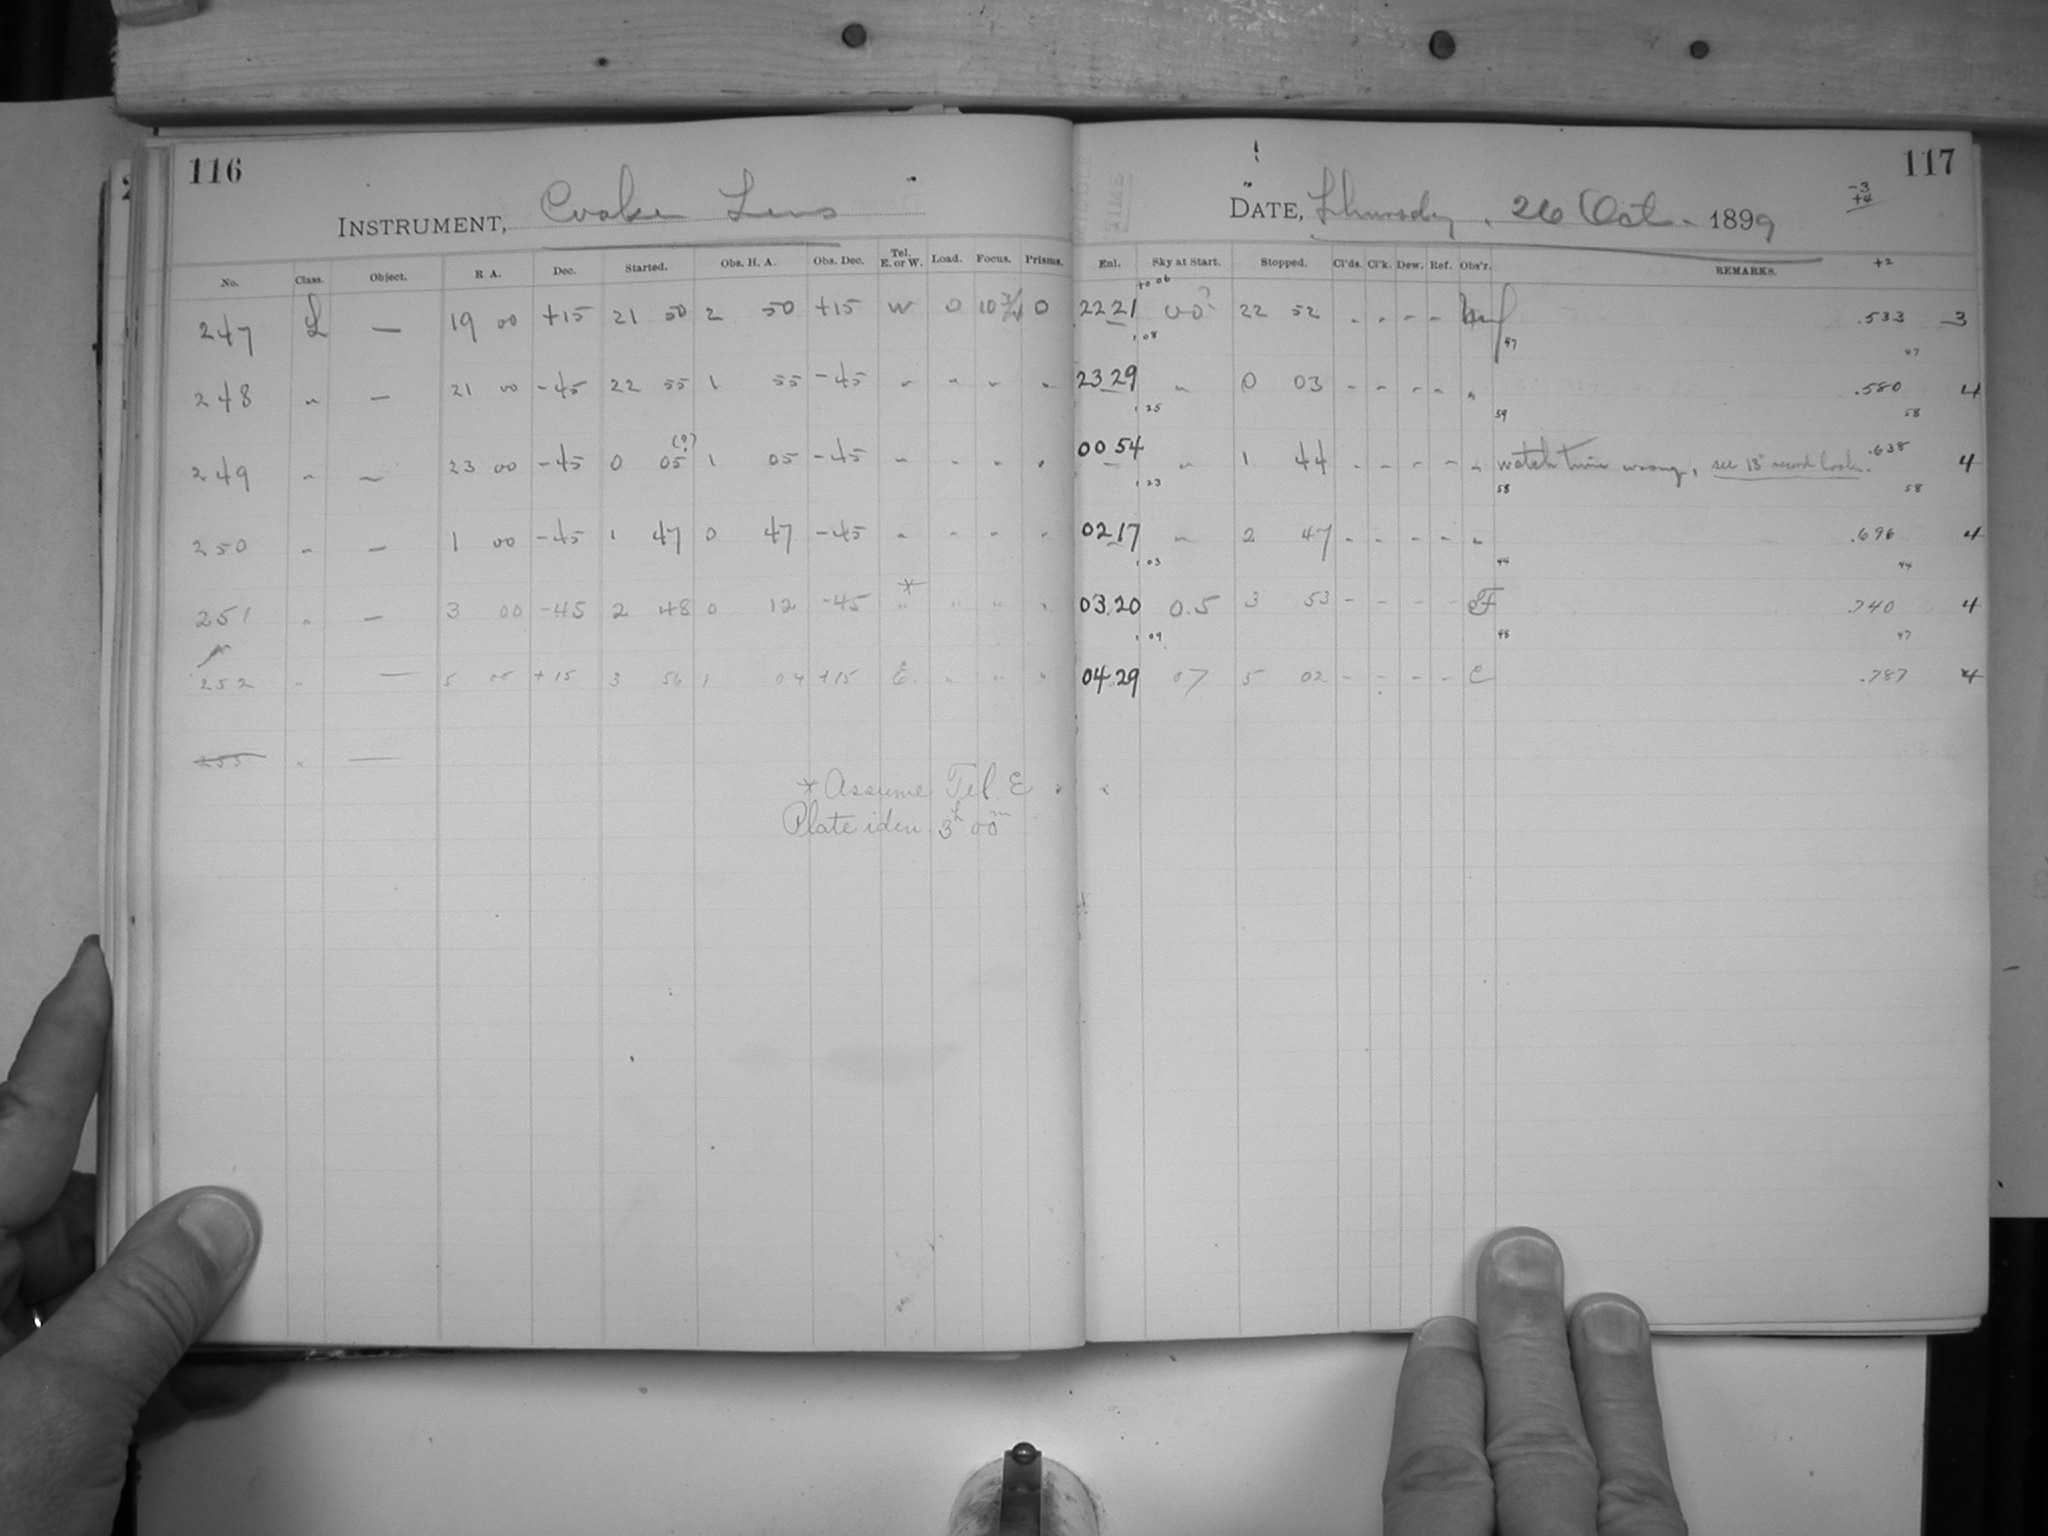 116
INSTRUMENT, Cooke Lens
No. Class. Object. R A. Dec. Started. Obs. H. A. Obs. Dec. Tel. E. or W. Load. Focus. Prisms.
247 L — 19 00 +15 21 50 2 50 +15 W 0 10 3/4 0
248 " — 21 00 -45 22 55 1 55 -45 " " " "
249 " — 23 00 -45 0 05 (?) 1 05 -45 " " " "
250 " — 1 00 -45 1 47 0 47 -45 " " " "
251 " — 3 00 -45 2 48 0 12 -45 * " " " "
252 " — 5 00 +15 3 56 1 04 +15 E " " "
253 " —
* Assume Tel. E
Plate iden 3h 00m
117
DATE, Thursday, 26 Oct. 1899
-3
+4
Enl. Sky at Start. Stopped. Cl'ds. Cl'k. Dew. Ref. Obs'r. REMARKS. +2
+0 06
22 21 00? 22 52 - - - - .533 -3
1 08 47 47
23 29 " 0 03 - - - - " .580 4
1 25 59 58
00 54 " 1 44 - - - - " watch time wrong, see 13" record book. .638 4
1 23 58 58
02 17 " 2 47 - - - - " .696 4
1 03 44 44
03 20 0.5 3 53 - - - - F .740 4
1 09 48 47
04 29 07 5 02 - - - - C .787 4